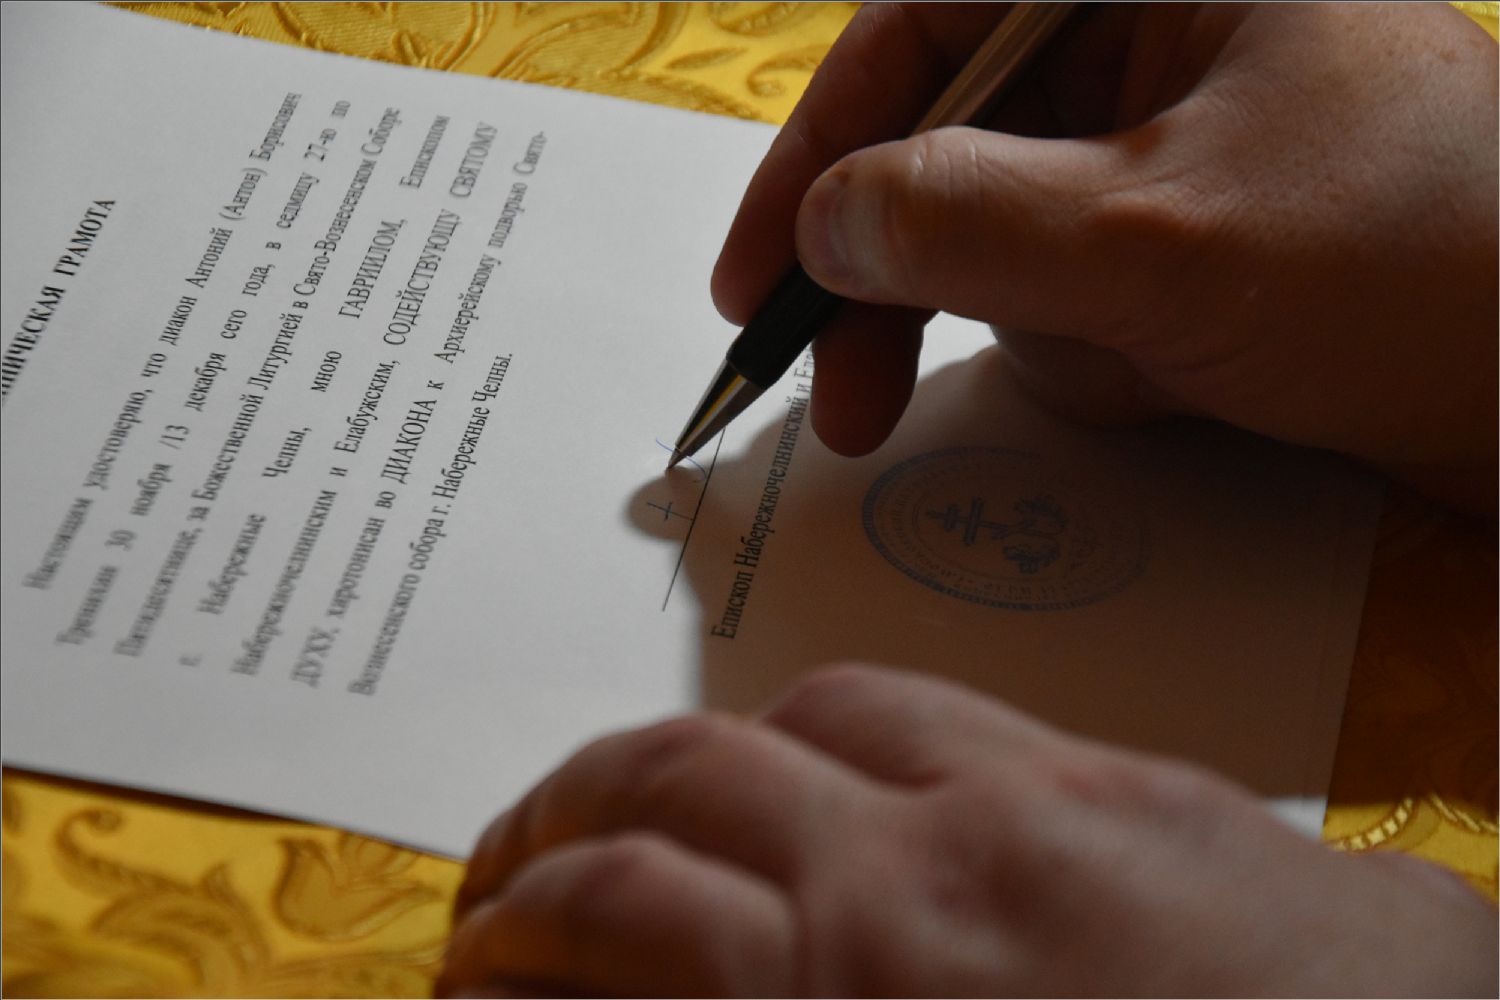 ГРАМОТА
Настоящим удостоверяю, что диакон Антоний (Антон) Борисович
30 ноября /13 декабря сего года, в седмицу 27-ю по
Пятидесятнице, за Божественной Литургией в Свято-Вознесенском Соборе
г. Набережные Челны, мною ГАВРИИЛОМ, Епископом
Набережночелнинским и Елабужским, СОДЕЙСТВУЮЩУ СВЯТОМУ
ДУХУ, хиротонисан во ДИАКОНА к Архиерейскому подворью Свято-
Вознесенского собора г. Набережные Челны.
Епископ Набережночелнинский и